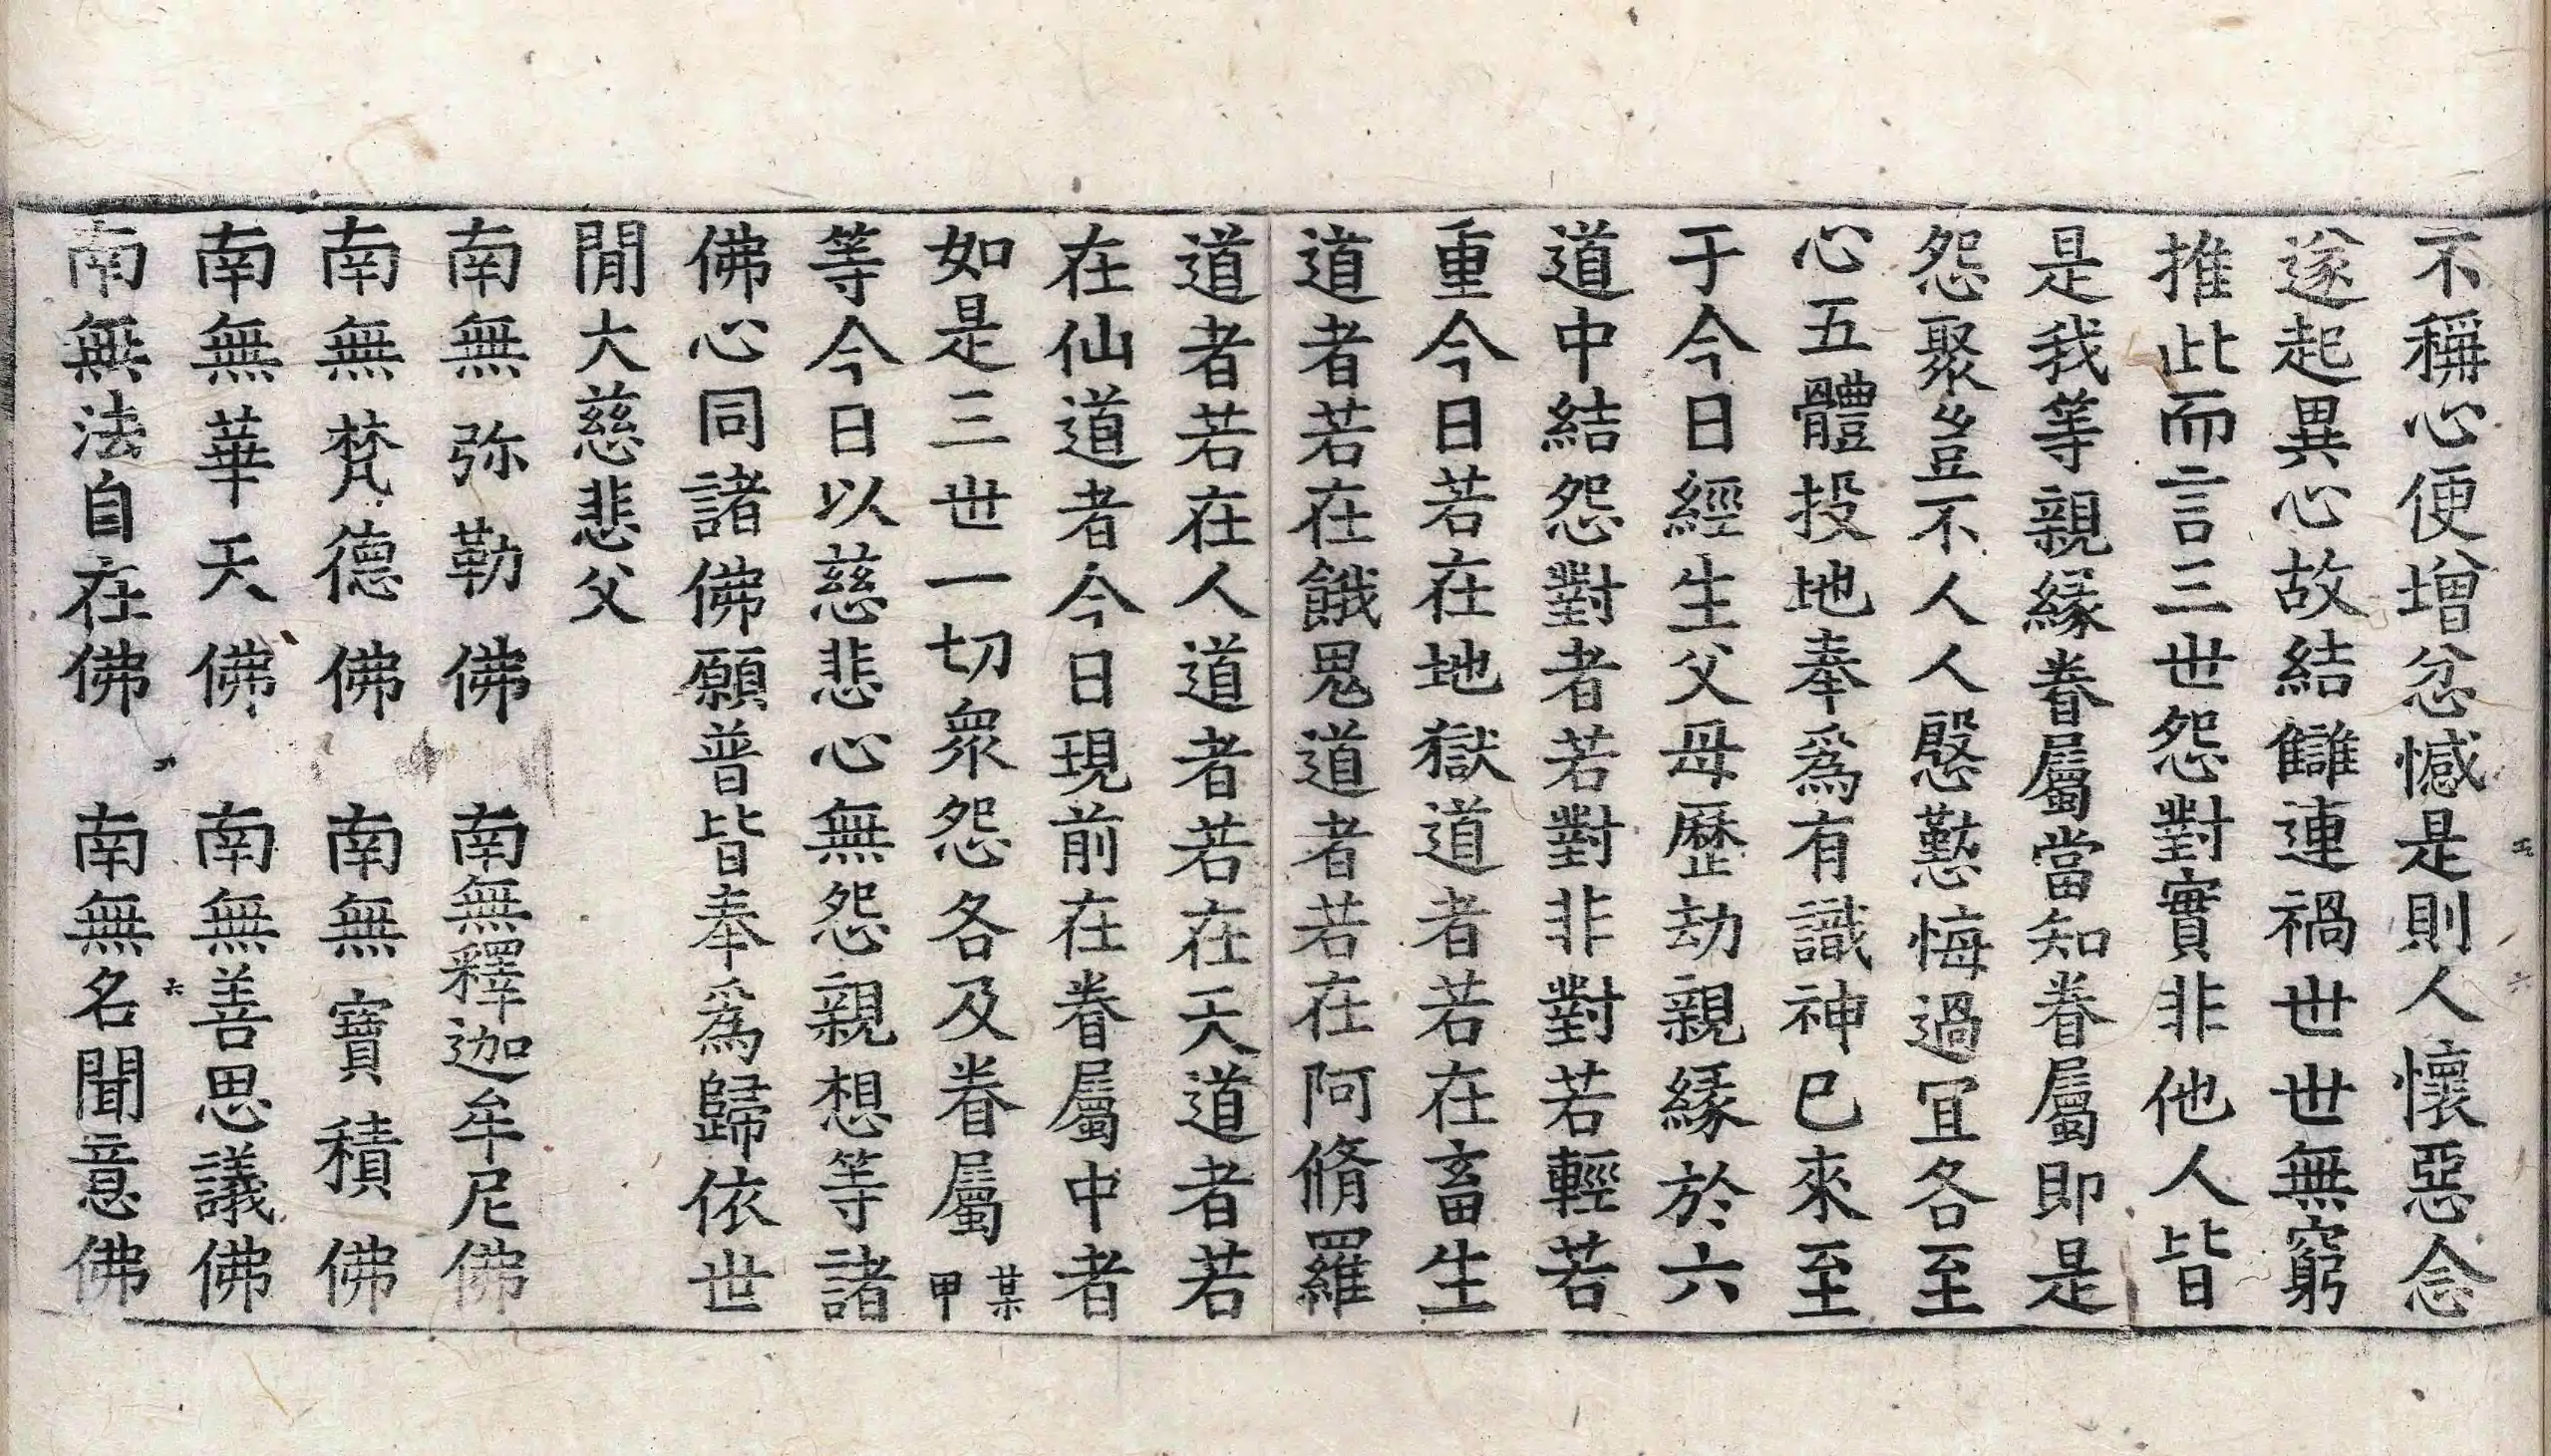 不稱心便增忿憾是則人懷惡念
遂起異心故結讎連禍世世無窮
推此而言三世怨對實非他人皆
是我等親緣眷屬當知眷屬即是
怨聚豈不人人慇懃悔過冝各至
心五體投地奉爲有識神已來至
于今日經生父母歷劫親緣於六
道中結怨對者若對非對若輕若
重今日若在地獄道者若在畜生
道者若在餓鬼道者若在阿脩羅
道者若在人道者若在天道者若
在仙道者今日現前在眷屬中者
如是三世一切衆怨各及眷屬某甲
等今日以慈悲心無怨親想等諸
佛心同諸佛願普皆奉爲歸依世
間大慈悲父
南無弥勒佛 南無釋迦牟尼佛
南無梵德佛 南無寶積佛
南無華天佛 南無善思議佛
南無法自在佛 南無名聞意佛